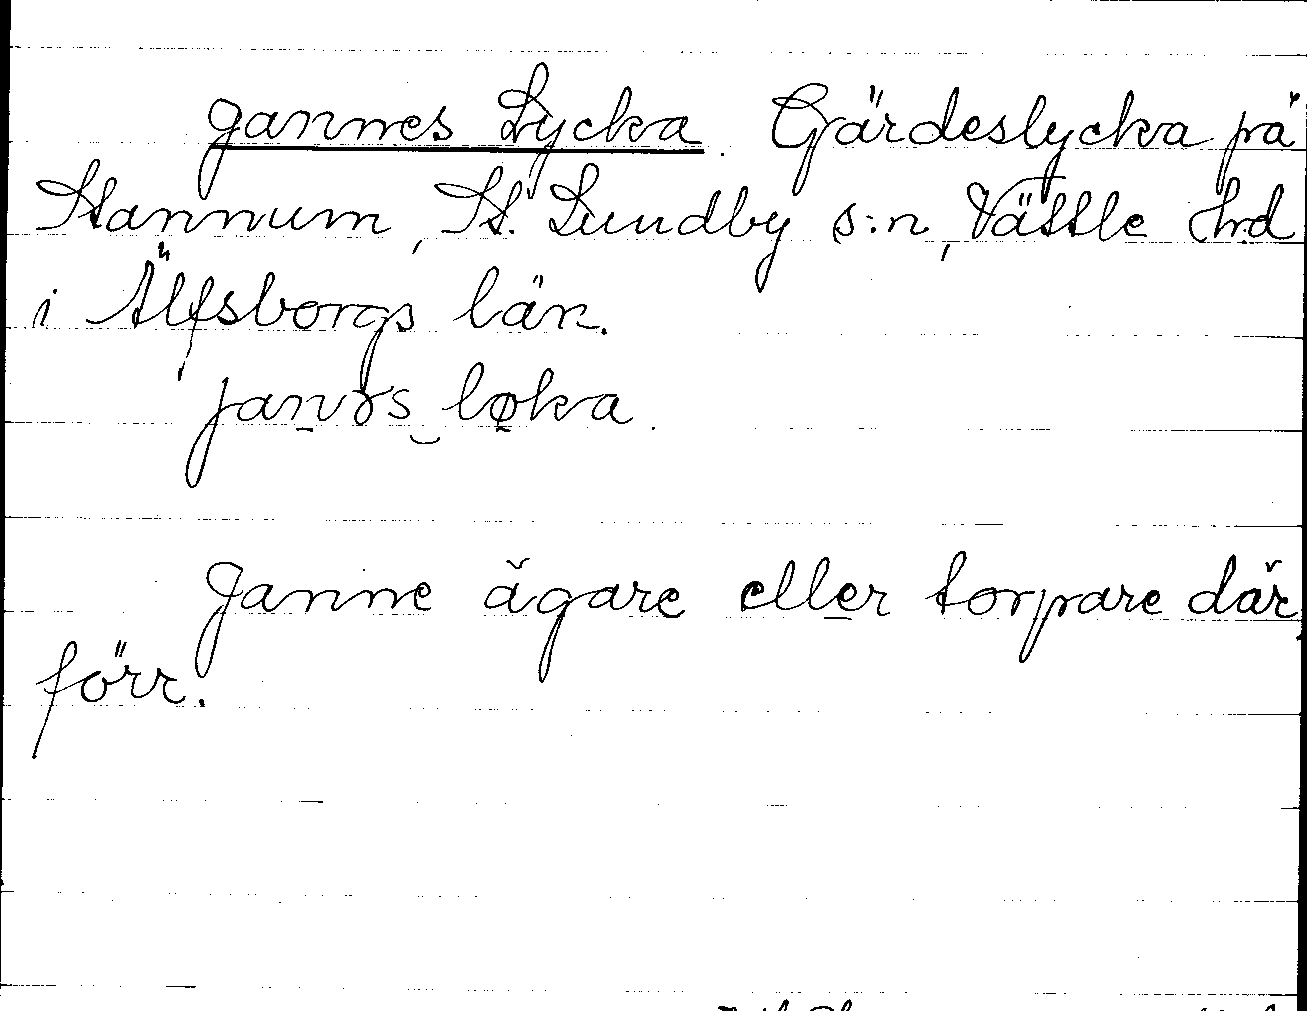 Jannes Lycka. Gärdeslycka på
Stannum, St. Lundby s:n, Vättle hrd
i Älfsborgs län.
janɤs løka.
Janne ägare eller torpare där
förr.